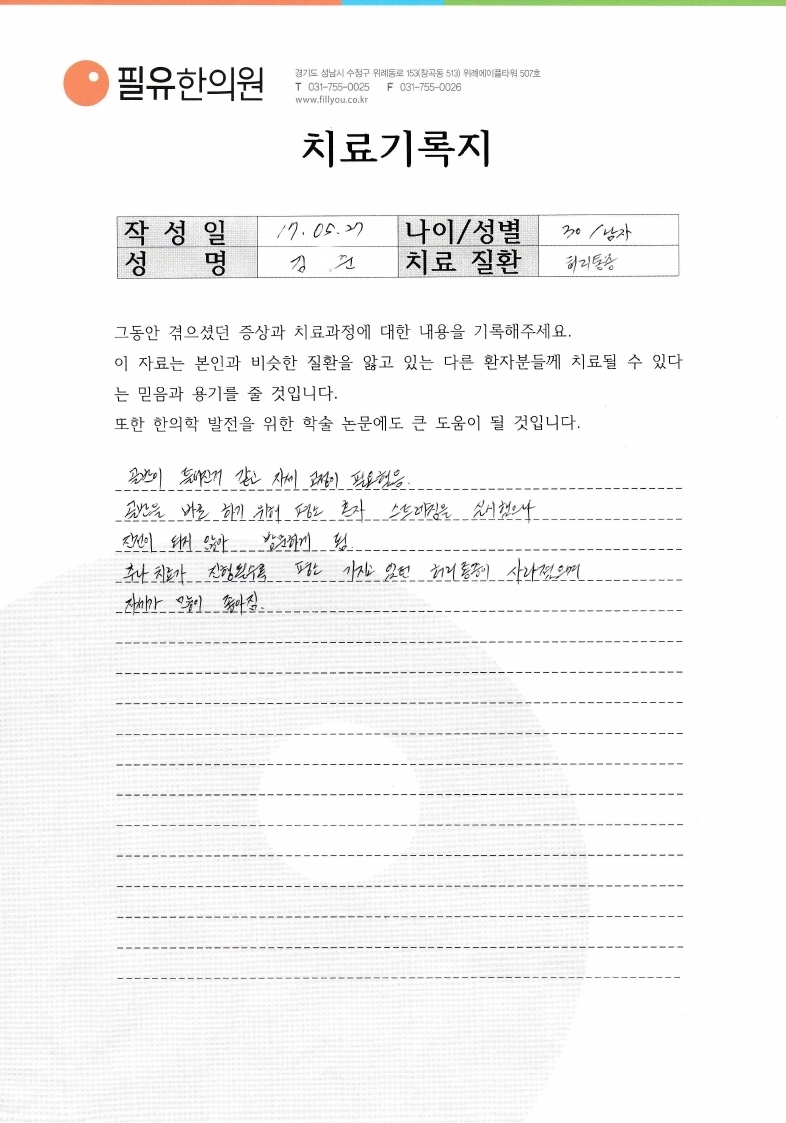 필유한의원
경기도 성남시 수정구 위례동로 153(창곡동 513) 위례에이플타워 507호
T 031-755-0025 F 031-755-0026
www.fillyou.co.kr
치료기록지
작 성 일 17. 05. 27 나이/성별 30 / 남자
성 명 김 치료 질환 허리통증
그동안 겪으셨던 증상과 치료과정에 대한 내용을 기록해주세요.
이 자료는 본인과 비슷한 질환을 앓고 있는 다른 환자분들께 치료될 수 있다
는 믿음과 용기를 줄 것입니다.
또한 한의학 발전을 위한 학술 논문에도 큰 도움이 될 것입니다.
골반이 틀어진거 같고 자세 교정이 필요했음.
골반을 바로 하기 위해 평소 혼자 스트레칭을 실시했으나
진전이 되지 않아 방문하게 됨.
추나 치료가 진행될수록 평소 가지고 있던 허리통증이 사라졌으며
자세가 많이 좋아짐.